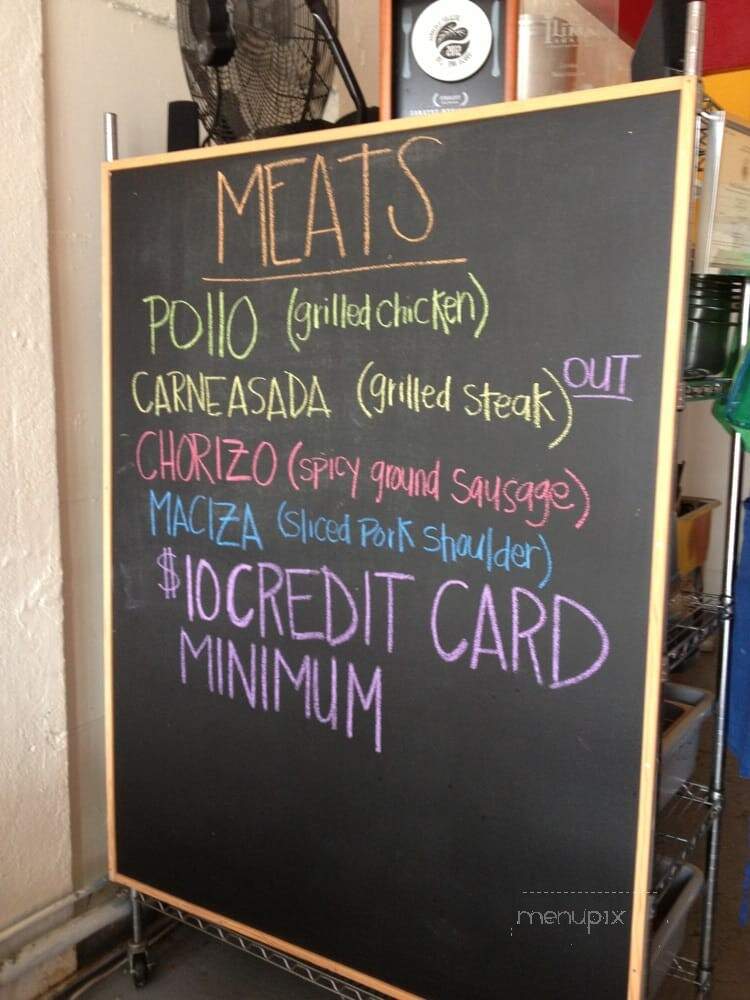 2012
MEATS
POllO (grilled chicken)
CARNE ASADA (grilled steak) OUT
CHORIZO (spicy ground sausage)
MACIZA (sliced pork shoulder)
$10 CREDIT CARD
MINIMUM
menupix